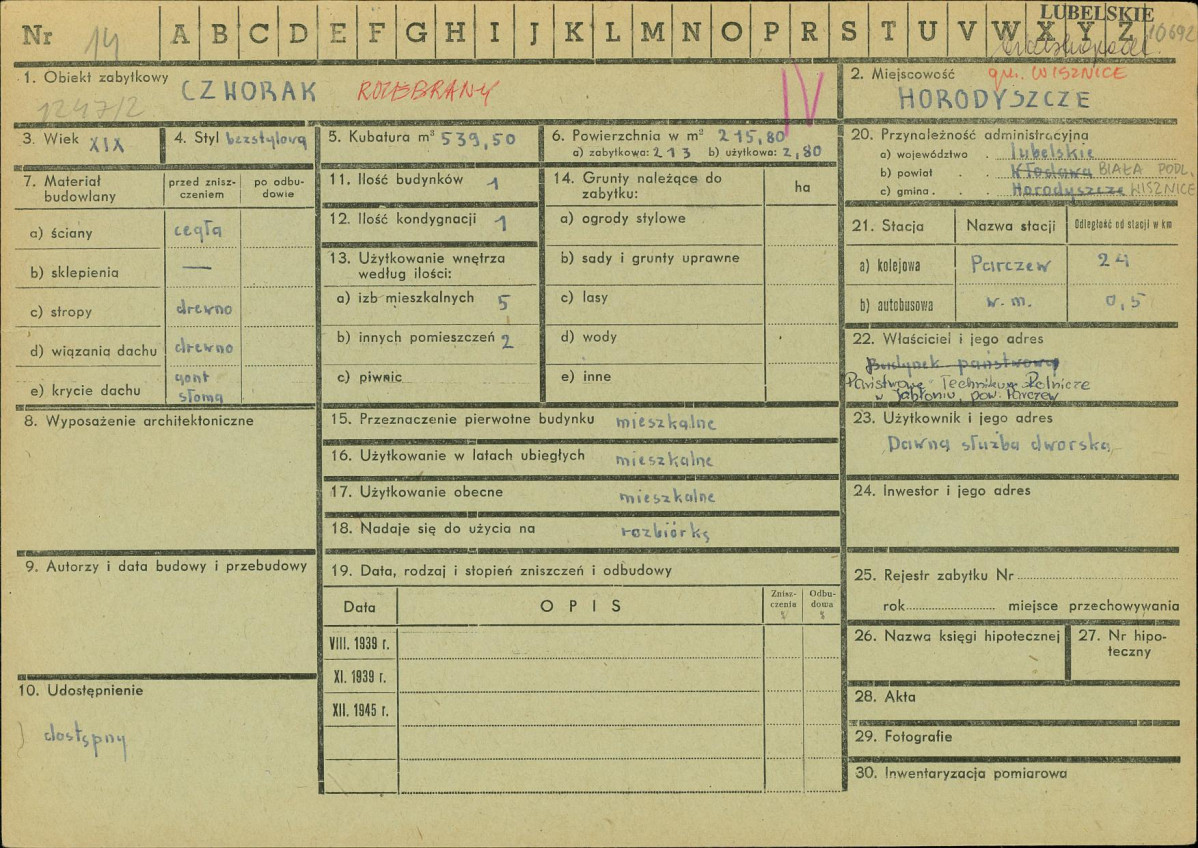 LUBELSKIE
Nr 14 A B C D E F G H I J K L M N O P R S T U V W X Y Z 10692
1. Obiekt zabytkowy
CZWORAK ROZEBRANY IV
1247/2
2. Miejscowość gm. WISZNICE
HORODYSZCZE
3. Wiek XIX
4. Styl bezstylowy
5. Kubatura m³ 539,50
6. Powierzchnia w m² 215,80
a) zabytkowa: 213 b) użytkowa: 2,80
20. Przynależność administracyjna
a) województwo . lubelskie
b) powiat . . Włodawa BIAŁA PODL.
c) gmina . . Horodyszcze WISZNICE
7. Materiał budowlany
przed znisz-
czeniem
po odbu-
dowie
a) ściany cegła
b) sklepienia —
c) stropy drewno
d) wiązania dachu drewno
e) krycie dachu gont
słoma
8. Wyposażenie architektoniczne
9. Autorzy i data budowy i przebudowy
10. Udostępnienie
dostępny
11. Ilość budynków 1
12. Ilość kondygnacji 1
13. Użytkowanie wnętrza
według ilości:
a) izb mieszkalnych 5
b) innych pomieszczeń 2
c) piwnic
14. Grunty należące do
zabytku:
ha
a) ogrody stylowe
b) sady i grunty uprawne
c) lasy
d) wody
e) inne
15. Przeznaczenie pierwotne budynku mieszkalne
16. Użytkowanie w latach ubiegłych mieszkalne
17. Użytkowanie obecne mieszkalne
18. Nadaje się do użycia na rozbiórkę
19. Data, rodzaj i stopień zniszczeń i odbudowy
Data OPIS
Znisz-
czenia
%
Odbu-
dowa
%
VIII. 1939 r.
XI. 1939 r.
XII. 1945 r.
21. Stacja Nazwa stacji Odległość od stacji w km
a) kolejowa Parczew 24
b) autobusowa w. m. 0,5
22. Właściciel i jego adres
Budynek państwowy
Państwowe Technikum Rolnicze
w Jabłoniu, pow. Parczew
23. Użytkownik i jego adres
Dawna służba dworska
24. Inwestor i jego adres
25. Rejestr zabytku Nr
rok miejsce przechowywania
26. Nazwa księgi hipotecznej
27. Nr hipo-
teczny
28. Akta
29. Fotografie
30. Inwentaryzacja pomiarowa